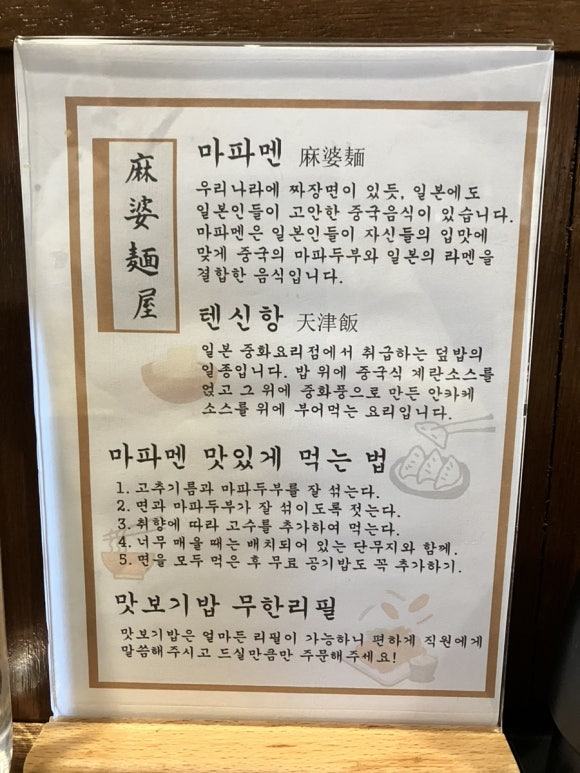 麻婆麺屋
마파멘 麻婆麺
우리나라에 짜장면이 있듯, 일본에도
일본인들이 고안한 중국음식이 있습니다.
마파멘은 일본인들이 자신들의 입맛에
맞게 중국의 마파두부와 일본의 라멘을
결합한 음식입니다.
텐신항 天津飯
일본 중화요리점에서 취급하는 덮밥의
일종입니다. 밥 위에 중국식 계란소스를
얹고 그 위에 중화풍으로 만든 안카케
소스를 위에 부어먹는 요리입니다.
마파멘 맛있게 먹는 법
1. 고추기름과 마파두부를 잘 섞는다.
2. 면과 마파두부가 잘 섞이도록 젓는다.
3. 취향에 따라 고수를 추가하여 먹는다.
4. 너무 매울 때는 배치되어 있는 단무지와 함께.
5. 면을 모두 먹은 후 무료 공기밥도 꼭 추가하기.
맛보기밥 무한리필
맛보기밥은 얼마든 리필이 가능하니 편하게 직원에게
말씀해주시고 드실만큼만 주문해주세요!